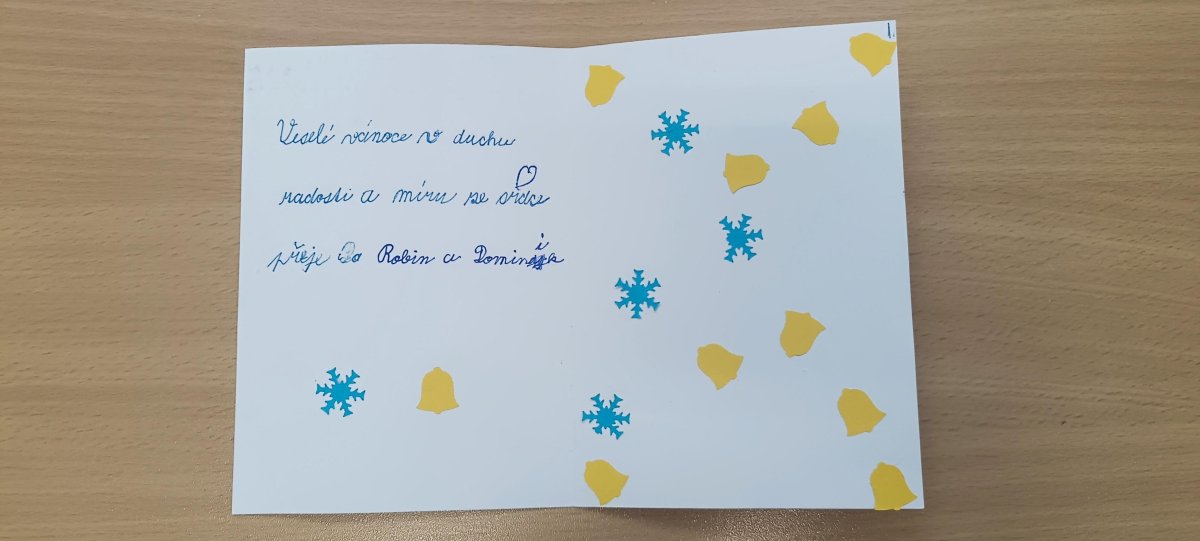 1.
Veselé vánoce v duchu
radosti a míru ze srdce
přeje Robin a Dominika